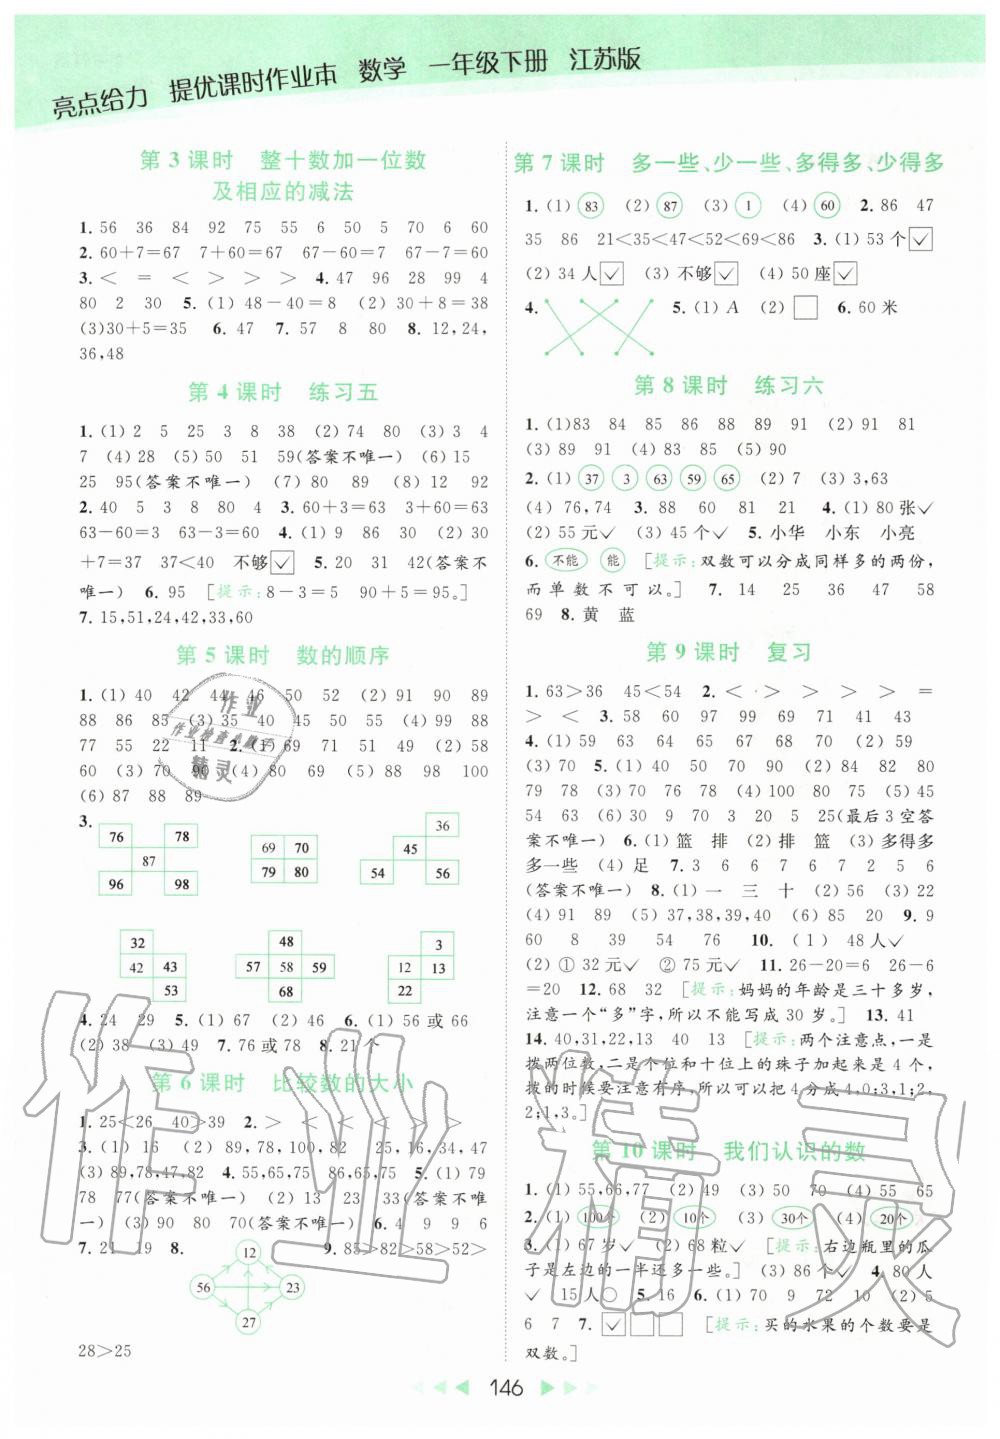 亮点给力 提优课时作业本 数学 一年级下册 江苏版
第 3 课时 整十数加一位数
及相应的减法
1. 56 36 84 92 75 55 6 50 5 70 6 60
2. 60+7=67 7+60=67 67-60=7 67-7=60
3. < = < > > > 4. 47 96 28 99 4
80 2 30 5. (1) 48-40=8 (2) 30+8=38
(3)30+5=35 6. 47 7. 57 8 80 8. 12,24,
36,48
第 4 课时 练习五
1. (1) 2 5 25 3 8 38 (2) 74 80 (3) 3 4
7 (4) 28 (5) 50 51 59(答案不唯一) (6) 15
25 95(答案不唯一) (7) 80 89 (8) 12 92
2. 40 5 3 8 80 4 3. 60+3=63 3+60=63
63-60=3 63-3=60 4. (1) 9 86 30 (2) 30
+7=37 37<40 不够 ✓ 5. 20 31 42(答案不
唯一) 6. 95 [提示:8-3=5 90+5=95。]
7. 15,51,24,42,33,60
第 5 课时 数的顺序
1. (1) 40 42 44 46 50 52 (2) 91 90 89
88 86 85 (3) 35 40 45 50 55 (4) 99 88
77 55 22 11 2. (1) 69 71 51 49 (2) 58
60 (3) 70 90 (4) 80 69 (5) 88 98 100
(6) 87 88 89
3.
76 78
87
96 98
69 70
79 80
36
45
54 56
32
42 43
53
48
57 58 59
68
3
12 13
22
4. 24 29 5. (1) 67 (2) 46 6. (1) 或 66
(2) 38 (3) 49 7. 76 或 78 8. 21 个
第 6 课时 比较数的大小
1. 25<26 40>39 2. > < < < > >
3. (1) 16 (2) 89,78,100,82 25,16,34,47
(3) 89,78,47,82 4. 55,65,75 86,65,75 5. (1) 79
78 77(答案不唯一) (2) 31 13(答案不唯
一) (3) 90 80 70(答案不唯一) 6. 4 9 9 6
7. 21 19 8. 9. 85>82>58>52>
12
56 23
27
28>25
第 7 课时 多一些、少一些、多得多、少得多
1. (1) 83 (2) 87 (3) 1 (4) 60 2. 86 47
35 86 21<35<47<52<69<86 3. (1) 53 个 ✓
(2) 34 人 ✓ (3) 不够 ✓ (4) 50 座 ✓
4. 5. (1) A (2) □ 6. 60 米
第 8 课时 练习六
1. (1)83 84 85 86 88 89 (2) 91 81
(3) 89 91 (4) 83 85 (5) 90
2. (1) 37 3 63 59 65 (2) 7 (3) 3,63
(4) 76,74 3. 88 60 81 21 4. (1) 80 张✓
(2) 55 元✓ (3) 45 个✓ 5. 小华 小东 小亮
6. 不能 能 [提示:双数可以分成同样多的两份,
而单数不可以。] 7. 14 25 36 47 58
69 8. 黄 蓝
第 9 课时 复习
1. 63>36 45<54 2. < > > > > =
> < 3. 58 60 97 99 69 71 41 43
4. (1) 59 63 64 65 67 68 70 (2) 59
(3) 70 5. (1) 40 50 70 90 (2) 84 82 80
79 78 (3) 70 76 78 (4) 100 80 75 (5) 45
54 63 (6) 30 9 70 3 20 5 25(最后 3 空答
案不唯一) 6. (1) 篮 排 (2) 排 篮 (3) 多得多
多一些 (4) 足 7. 3 6 6 7 6 7 2 5 6
(答案不唯一) 8. (1) 一 三 十 (2) 56 (3) 22
(4) 91 89 (5) 37,38,39,40 (6) 85 20 9. 9
60 8 39 54 76 10. (1) 48 人✓
(2) ① 32 元✓ ② 75 元✓ 11. 26-20=6 26-6
=20 12. 68 32 [提示:妈妈的年龄是三十多岁,
注意一个“多”字,所以不能写成 30 岁。] 13. 41
14. 40,31,22,13 40 13 [提示:两个注意点,一是
拨两位数,二是个位和十位上的珠子加起来是 4 个,
拨的时候要注意有序,所以可以把 4 分成 4,0;3,1;2,
2;1,3。]
第 10 课时 我们认识的数
1. (1) 55,66,77 (2) 49 (3) 50 70 (4) 55 65
2. (1) 100个 (2) 10个 (3) 30个 (4) 20个
3. (1) 67 岁✓ (2) 68 粒✓ [提示:右边瓶里的瓜
子是左边的一半还多一些。] (3) 86 个✓ 4. 80 人
✓ 15 人○ 5. 16 6. (1) 70 9 72 10 (2) 5
6 7 7. ✓ □ □ [提示:买的水果的个数要是
双数。]
146
作业
作业检查小助手
精灵
作业精灵